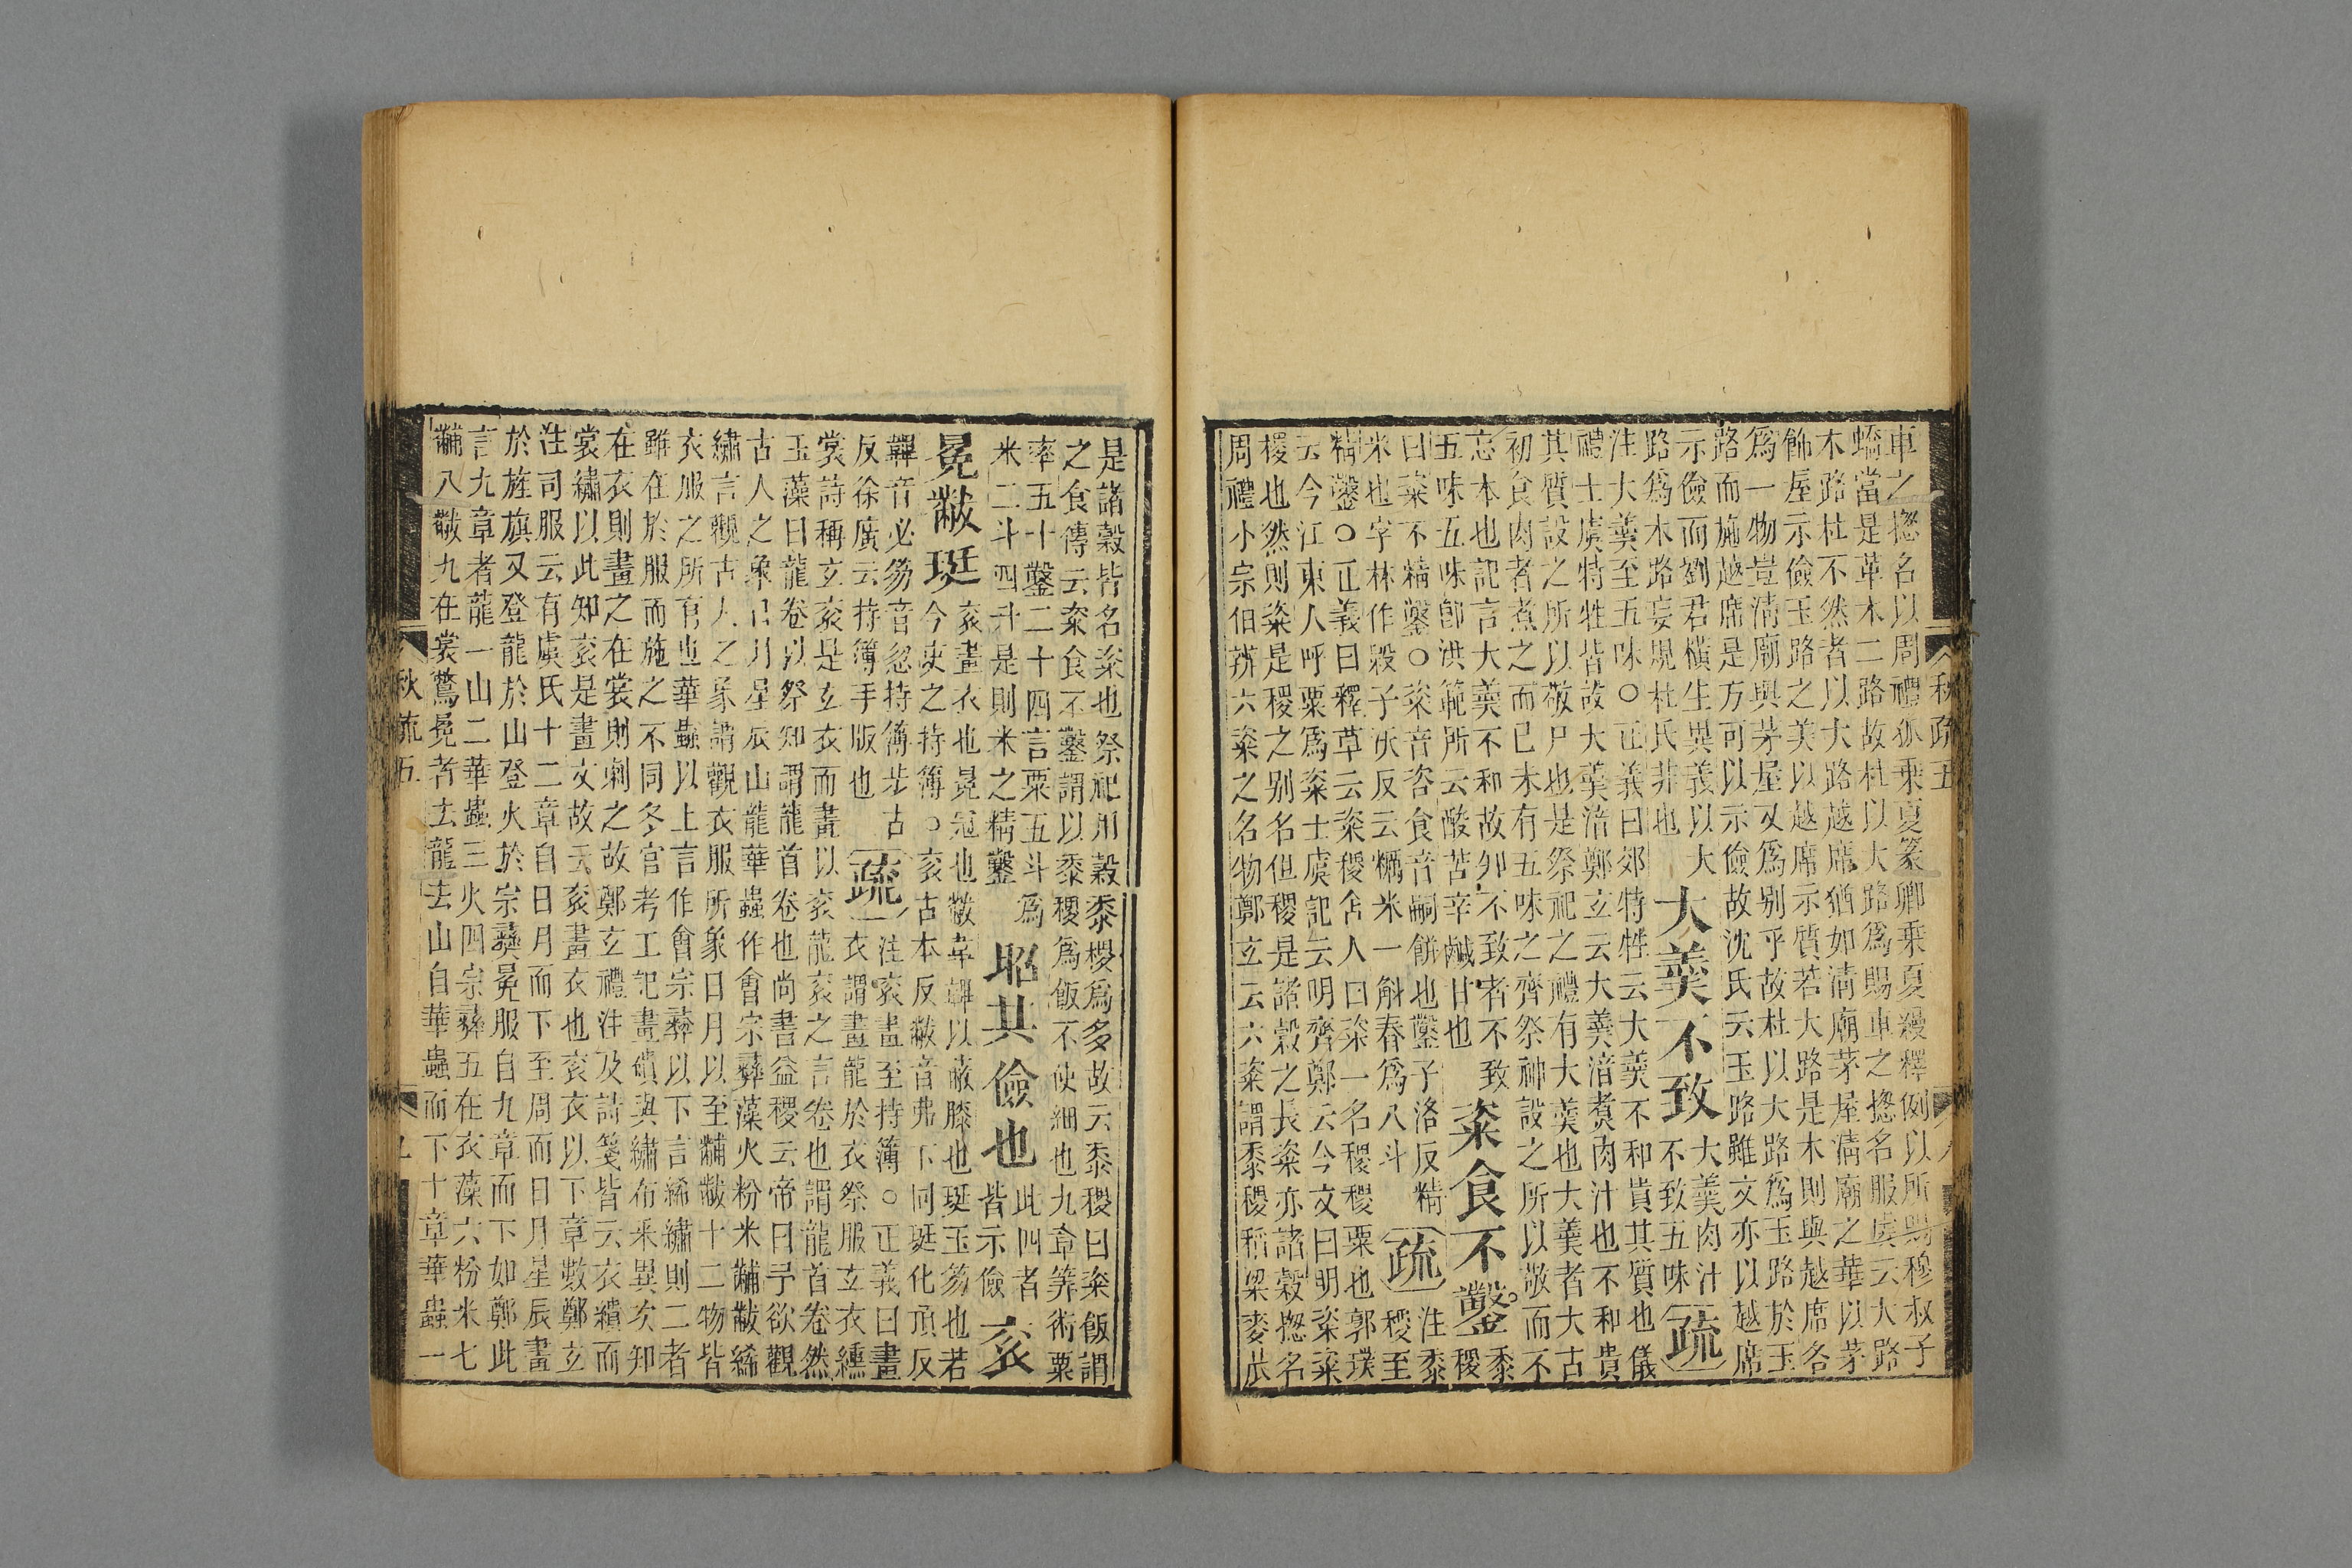 秋疏五
車之揔名以周禮孤乗夏篆卿乗夏縵釋例以所賜穆叔子
蟜當是革木二路故杜以大路爲賜車之揔名服虔云大路
木路杜不然者以大路越席猶如清廟茅屋清廟之華以茅
飾屋示儉玉路之美以越席示質若大路是木則與越席各
爲一物豈清廟與茅屋又爲别乎故杜以大路爲玉路於玉
路而施越席是方可以示儉故沈氏云玉路雖文亦以越席
示儉而劉君横生異義以大
路爲木路妄規杜氏非也
大羹不致
大羹肉汁
不致五味
疏
注大羹至五味○正義曰郊特牲云大羹不和貴其質也儀
禮士虞特牲皆設大羹涪鄭玄云大羹涪煮肉汁也不和貴
其質設之所以敬尸也是祭祀之禮有大羹也大羹者大古
初食肉者煮之而已未有五味之齊祭神設之所以敬而不
忘本也記言大羹不和故知不致者不致
五味五味卽洪範所云酸苦辛鹹甘也
粢食不鑿
黍稷
曰粢不精鑿○粢音咨食音嗣餅也鑿子洛反精
米也字林作毇子沃反云糲米一斛舂爲八斗
疏
注黍稷至
精鑿○正義曰釋草云粢稷舍人曰粢一名稷稷粟也郭璞
云今江東人呼粟爲粢士虞記云明齊鄭云今文曰明粢粢
稷也然則粢是稷之别名但稷是諸穀之長粢亦諸穀揔名
周禮小宗伯辨六粢之名物鄭玄云六粢謂黍稷稻粱麥苽
是諸穀皆名粢也祭祀用穀黍稷爲多故云黍稷曰粢飯謂
之食傳云粢食不鑿謂以黍稷爲飯不使細也九章筭術粟
率五十鑿二十四言粟五斗爲
米二斗四升是則米之精鑿
昭其儉也
此四者
皆示儉
衮
冕黻珽
衮畫衣也冕冠也黻韋韠以蔽膝也珽玉笏也若
今吏之持簿○衮古本反黻音弗下同珽化頂反
韠音必笏音忽持簿步古
反徐廣云持簿手版也
疏
注衮畫至持簿○正義曰畫
衣謂畫龍於衣祭服玄衣纁
裳詩稱玄衮是玄衣而畫以衮龍衮之言卷也謂龍首卷然
玉藻曰龍卷以祭知謂龍首卷也尚書益稷云帝曰予欲觀
古人之象日月星辰山龍華蟲作會宗彝藻火粉米黼黻絺
繡言觀古人之象謂觀衣服所象日月以至黼黻十二物皆
衣服之所有也華蟲以上言作會宗彝以下言絺繡則二者
雖在於服而施之不同冬官考工記畫繢與繡布采異次知
在衣則畫之在裳則刺之故鄭玄禮注及詩箋皆云衣繢而
裳繡以此知衮是畫文故云衮畫衣也衮衣以下章數鄭玄
注司服云有虞氏十二章自日月而下至周而日月星辰畫
於旌旗又登龍於山登火於宗彝冕服自九章而下如鄭此
言九章者龍一山二華蟲三火四宗彝五在衣藻六粉米七
黼八黻九在裳鷩冕者去龍去山自華蟲而下十章華蟲一
秋疏五